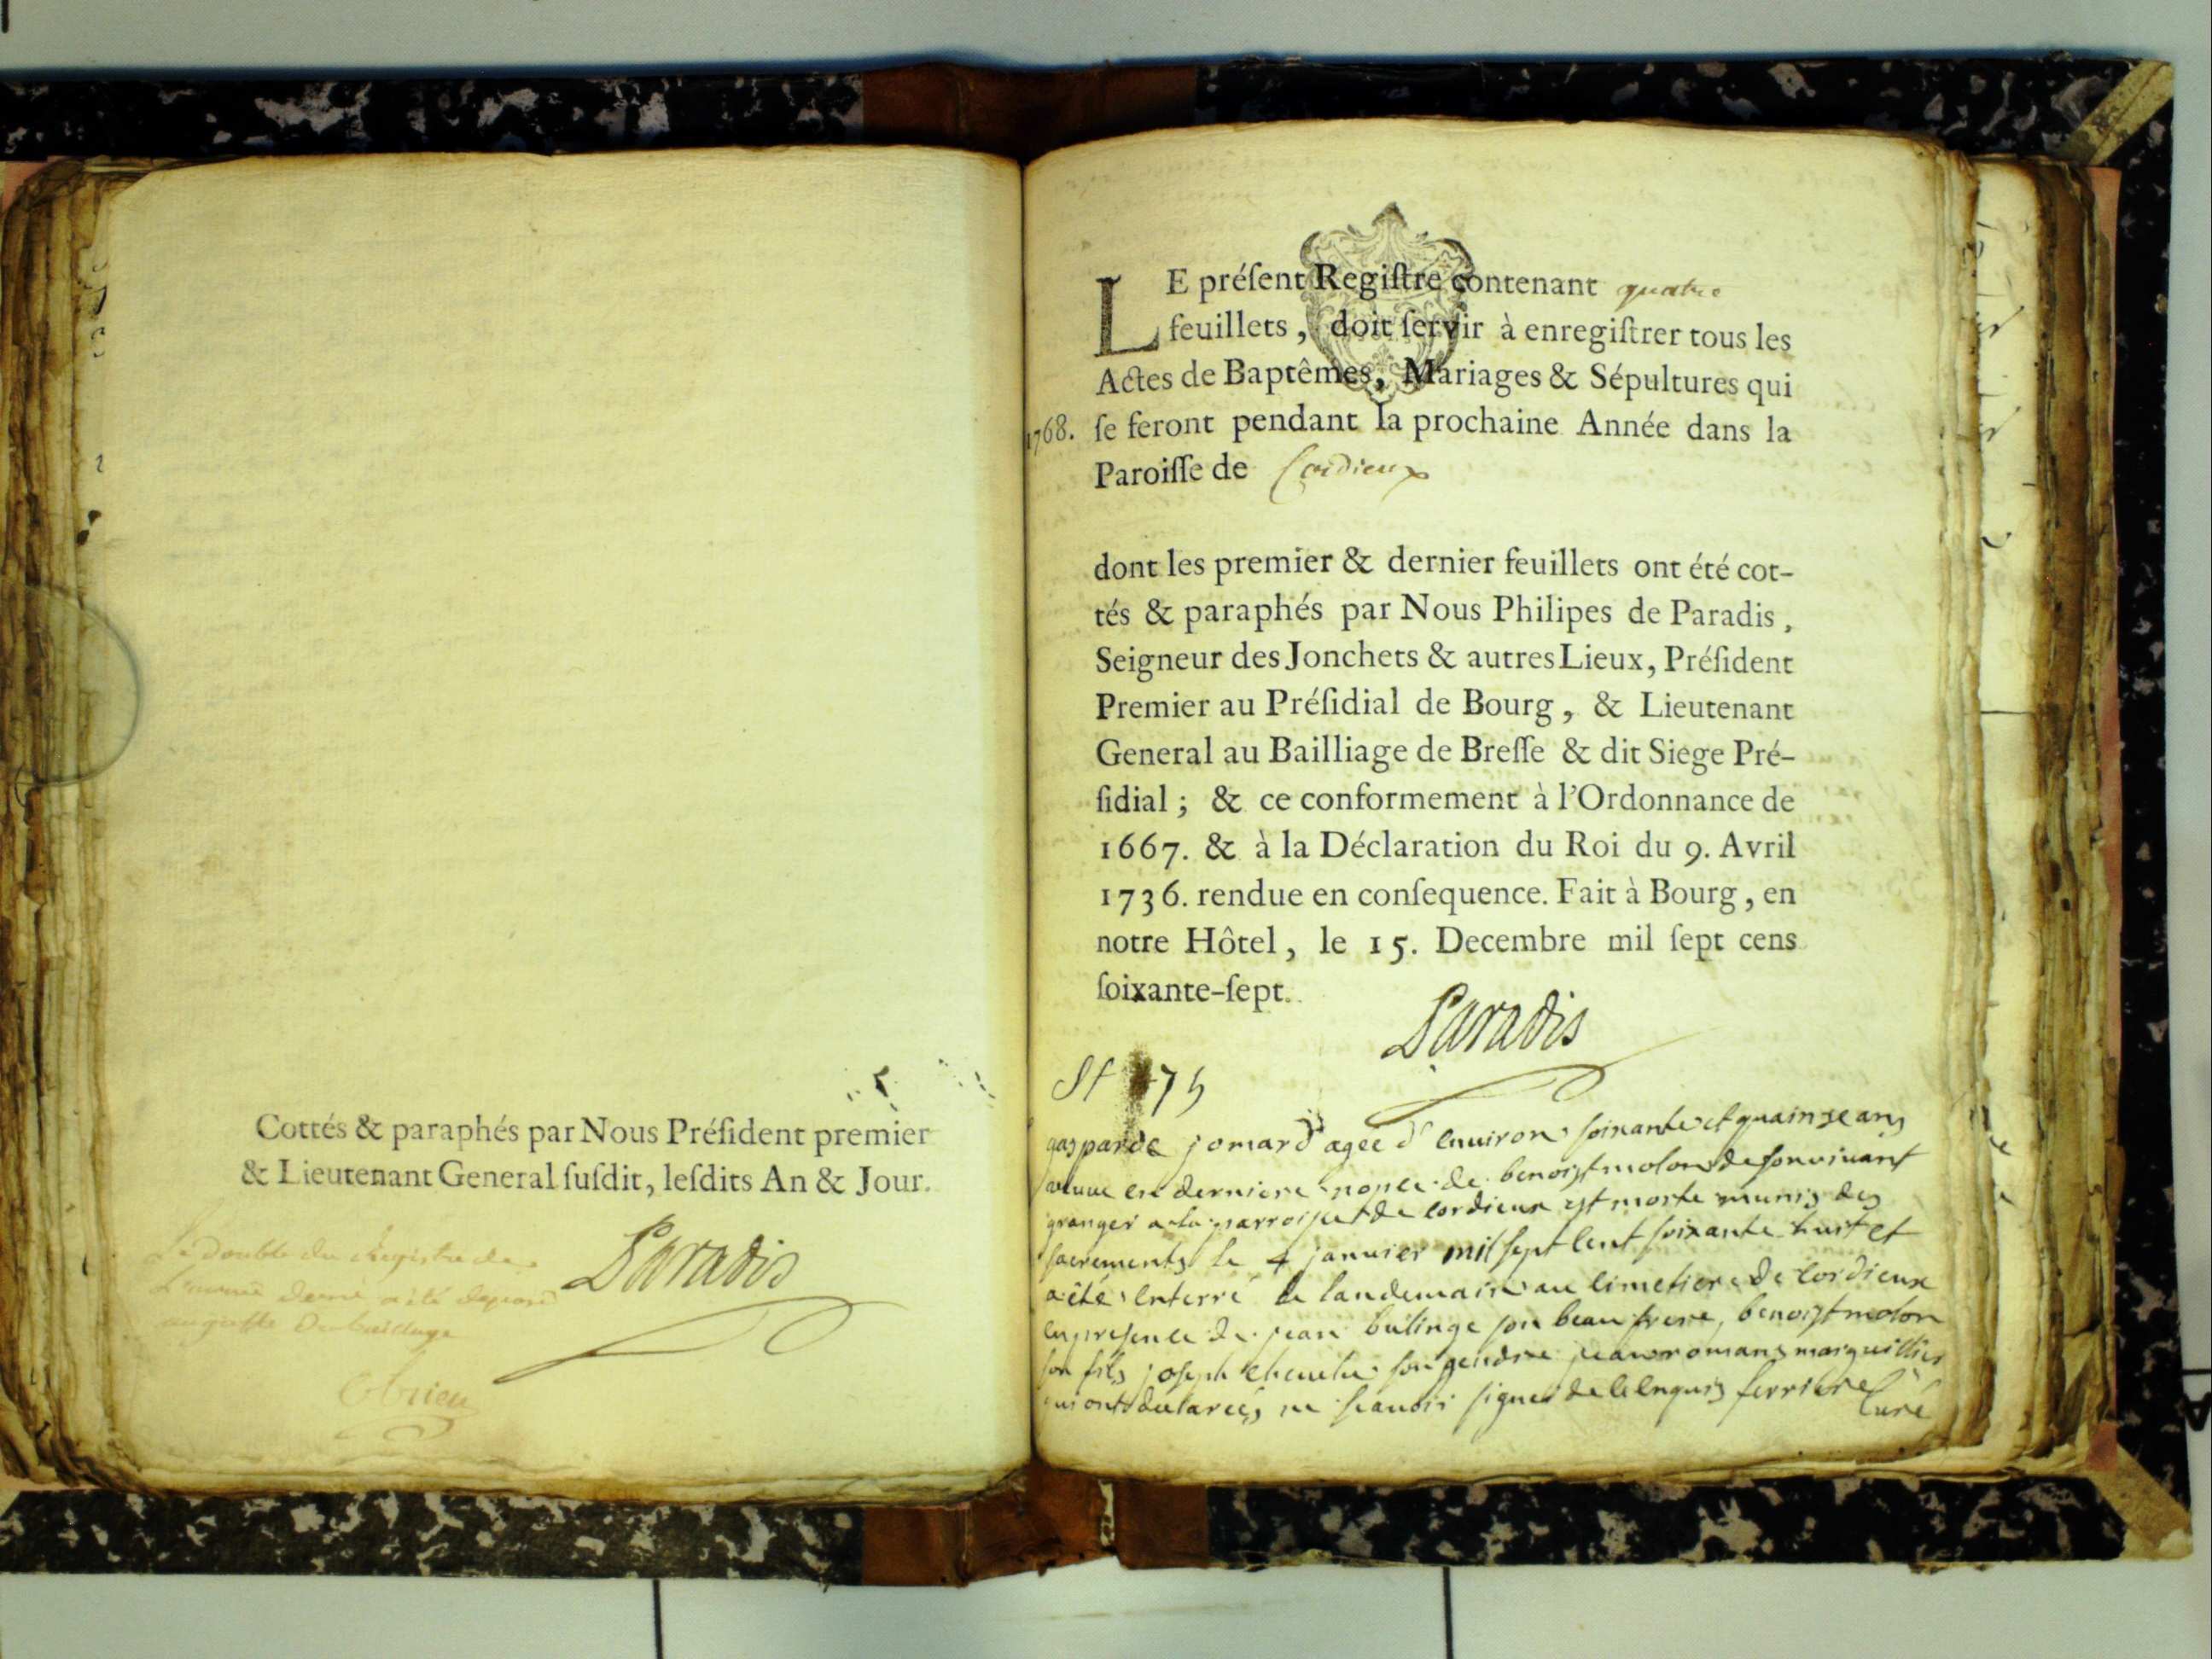 Cottés & paraphés par Nous Préſident premier
& Lieutenant General ſuſdit, leſdits An & Jour.
Le double du Registre de
L'année derne a été deposé
au greffe Du bailliage
Paradis
LE préſent Regiſtre contenant quatre
feuillets, doit ſervir à enregiſtrer tous les
Actes de Baptêmes, Mariages & Sépultures qui
1768. ſe feront pendant la prochaine Année dans la
Paroiſſe de Cordieux
dont les premier & dernier feuillets ont été cot-
tés & paraphés par Nous Philipes de Paradis,
Seigneur des Jonchets & autres Lieux, Préſident
Premier au Préſidial de Bourg, & Lieutenant
General au Bailliage de Breſſe & dit Siege Pré-
ſidial; & ce conformement à l'Ordonnance de
1667. & à la Déclaration du Roi du 9. Avril
1736. rendue en conſequence. Fait à Bourg, en
notre Hôtel, le 15. Decembre mil ſept cens
ſoixante-ſept.
Paradis
gasparde jomard agee d'environ soixante et quainze ans
veuve en derniere nopce de benoist molon de son vivant
granger a la parroisse de cordieux est morte munis des
sacrements le 4 janvier mil sept cent soixante huit et
a été enterré le landemain au cimetiere de cordieux
en presence de jean bulinge son beau frere, benoist molon
son fils joseph son gendre jean romans marguillier
qui ont declarées ne scavoir signer de ce enquis ferriere
Curé